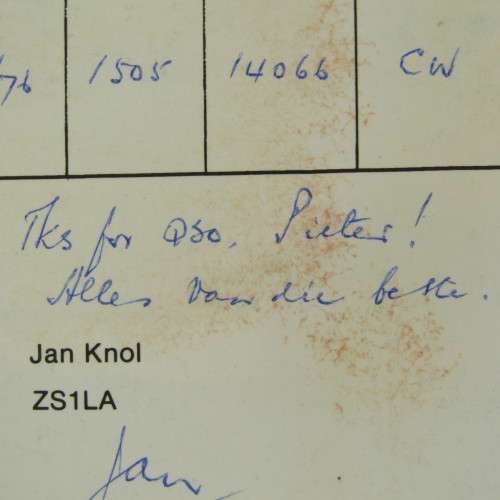 /76 1505 14066 CW
Tks for QSO, Pieter!
Alles van die beste.
Jan Knol
ZS1LA
Jan